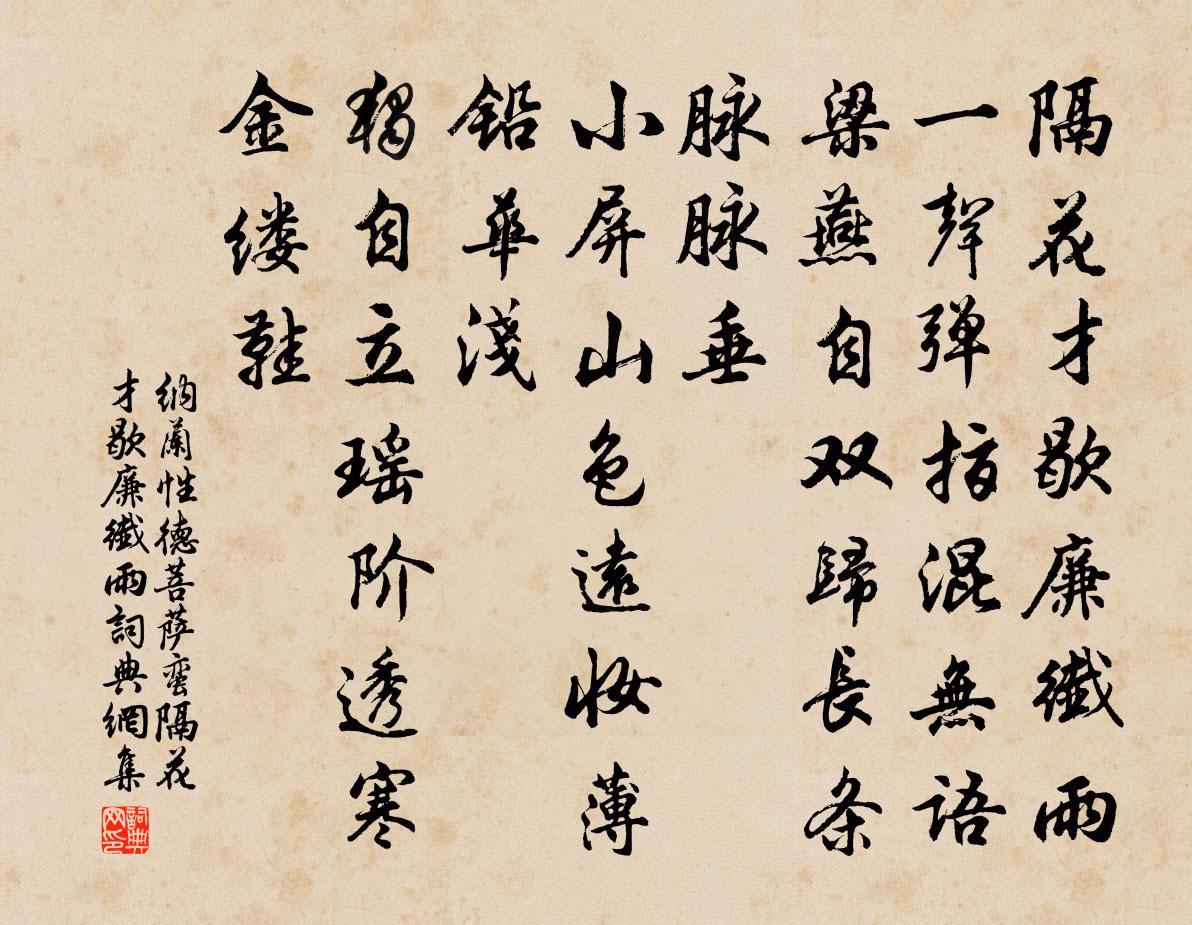 隔花才歇廉纖雨
一聲弹指混無語
梁燕自双歸長条
脉脉垂
小屏山色遠妆薄
鉛華淺
獨自立瑶阶透寒
金缕鞋
納蘭性德菩萨蛮隔花
才歇廉纖雨詞典網集
詞典网印